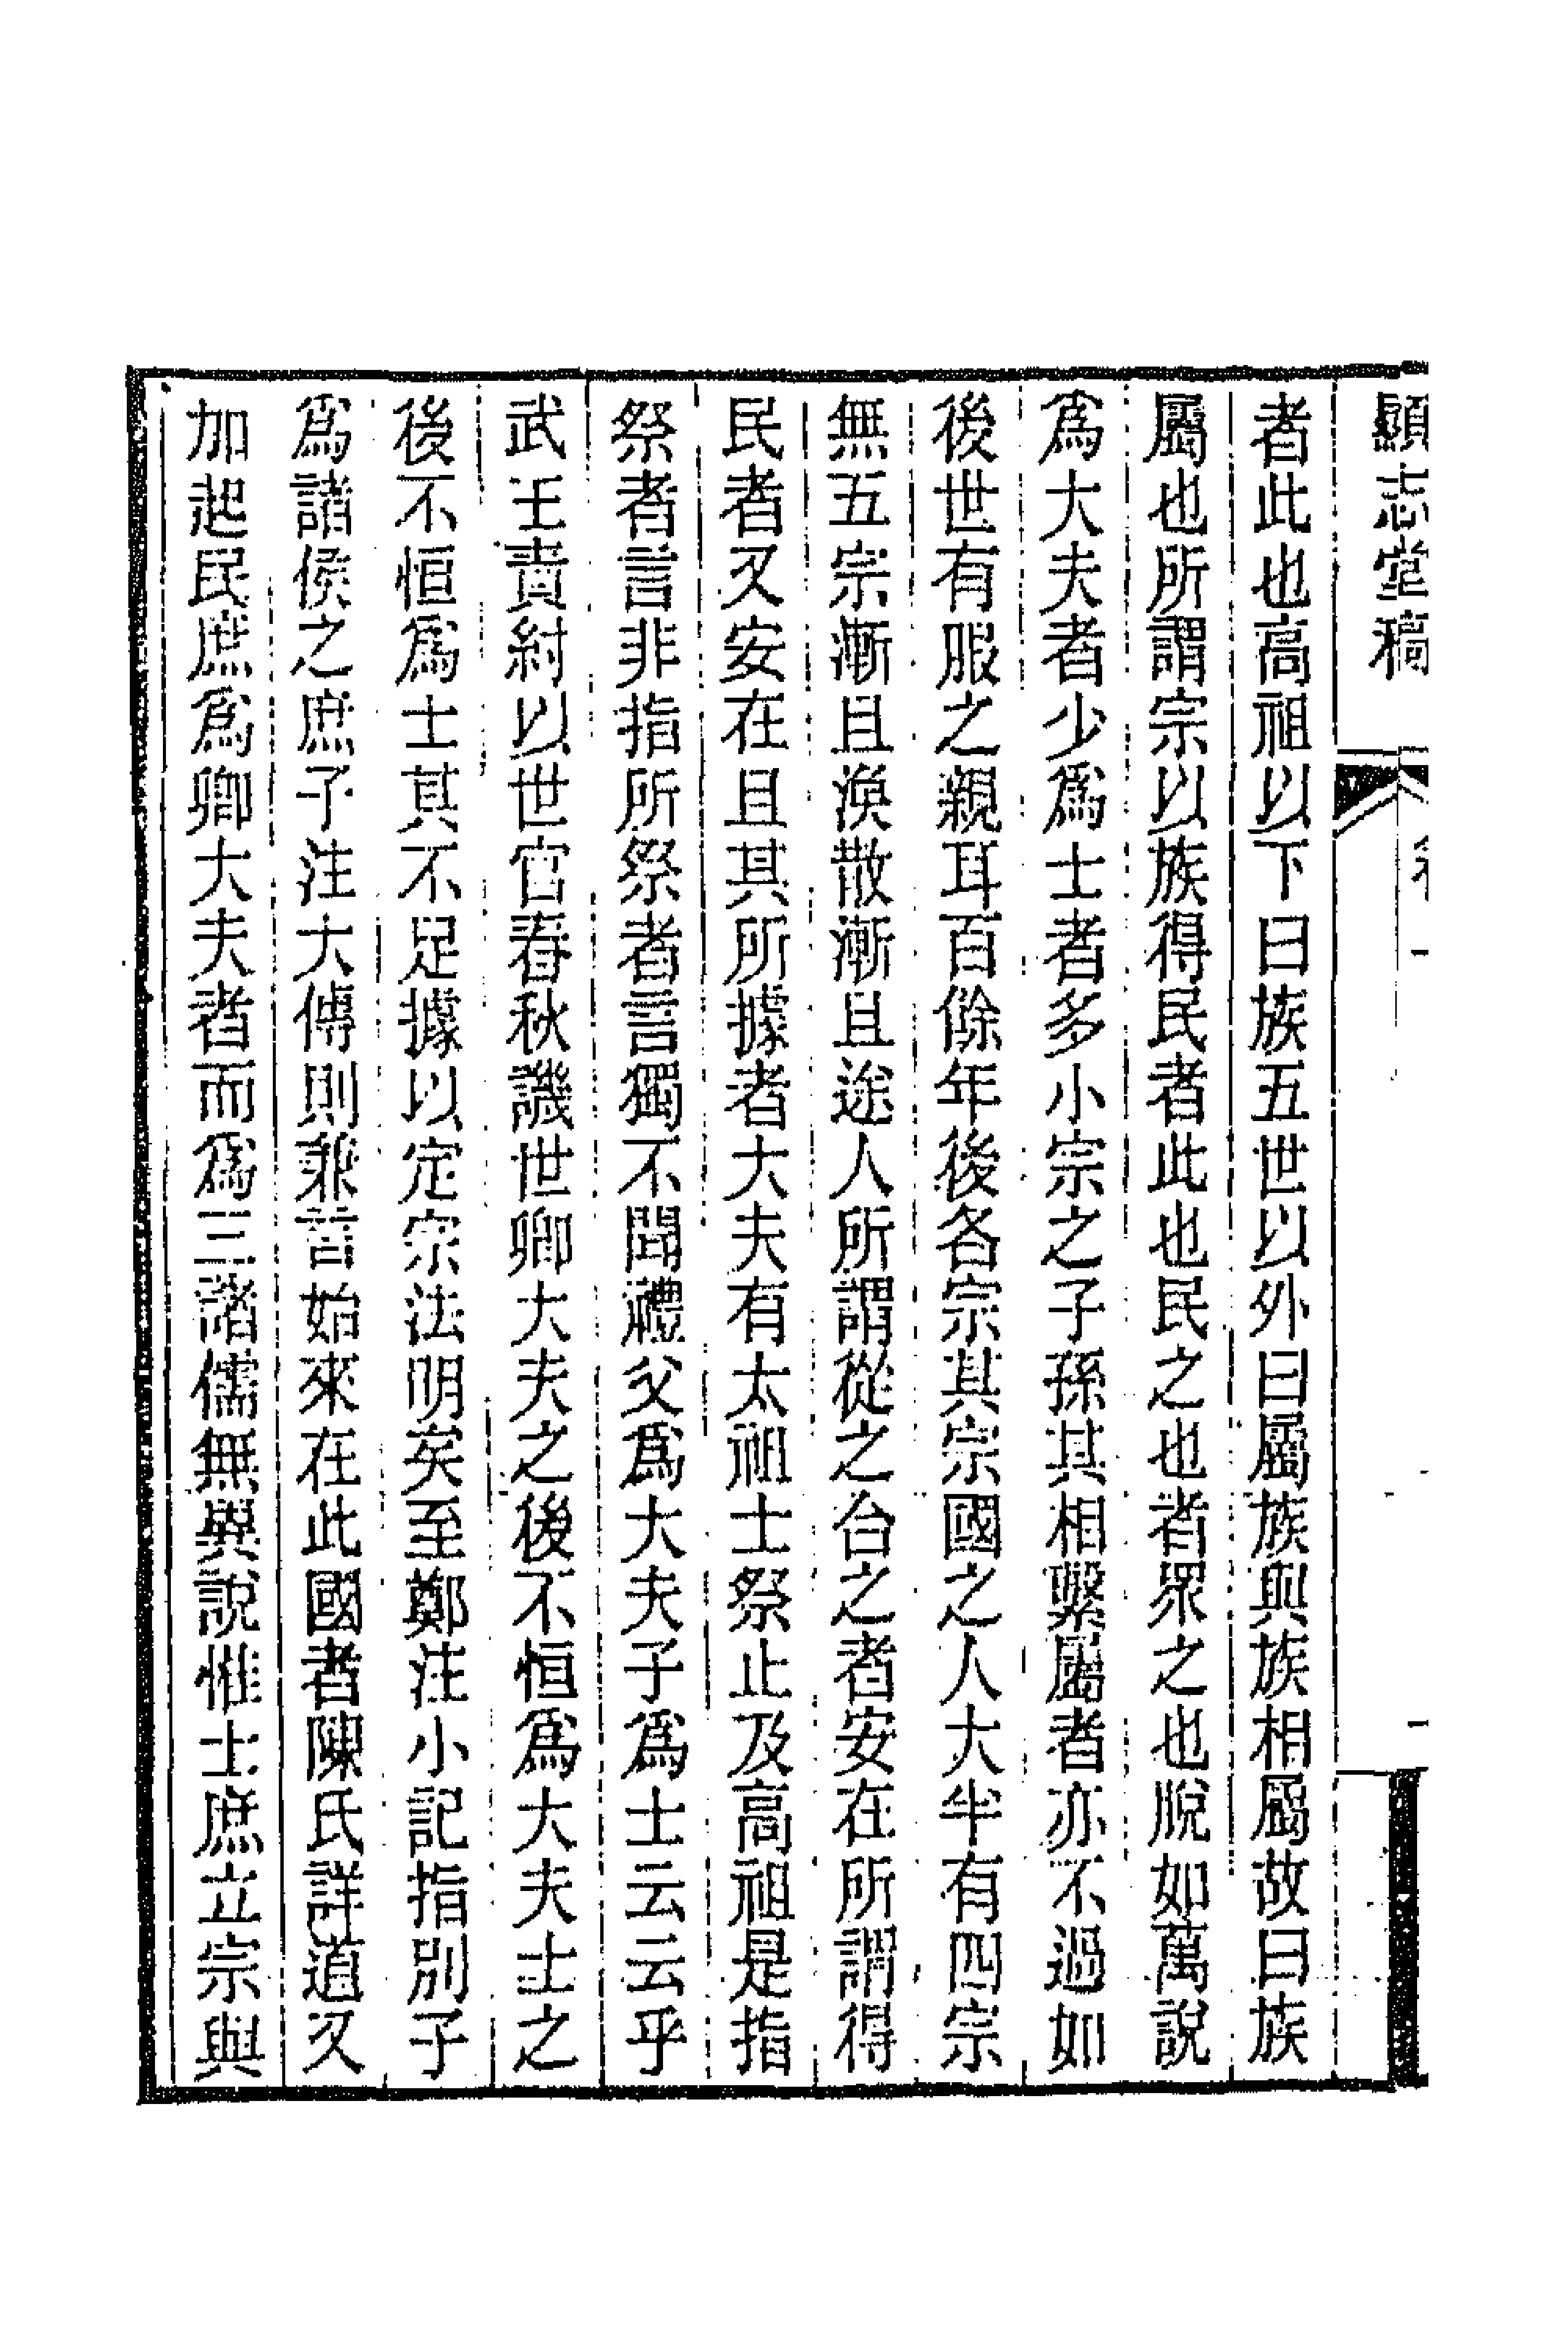 顯志堂稿
卷一
一
者此也高祖以下曰族五世以外曰屬族與族相屬故曰族
屬也所謂宗以族得民者此也民之也者眾之也脫如萬說
爲大夫者少爲士者多小宗之子孫其相繫屬者亦不過如
後世有服之親耳百餘年後各宗其宗國之人大半有四宗
無五宗漸且渙散漸且途人所謂從之合之者安在所謂得
民者又安在且其所據者大夫有太祖士祭止及高祖是指
祭者言非指所祭者言獨不聞禮父爲大夫子爲士云云乎
武王責紂以世官春秋譏世卿大夫之後不恒爲大夫士之
後不恒爲士其不足據以定宗法明矣至鄭注小記指別子
爲諸侯之庶子注大傳則兼言始來在此國者陳氏詳道又
加起民庶爲卿大夫者而爲三諸儒無異說惟士庶立宗與